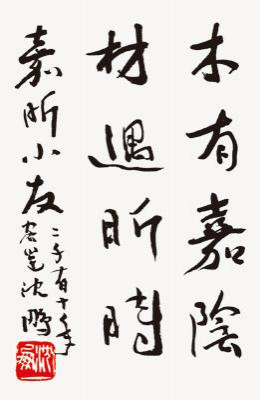 木有嘉陰
材遇昕時
嘉昕小友
二千有十年
沈鵬
沈鵬